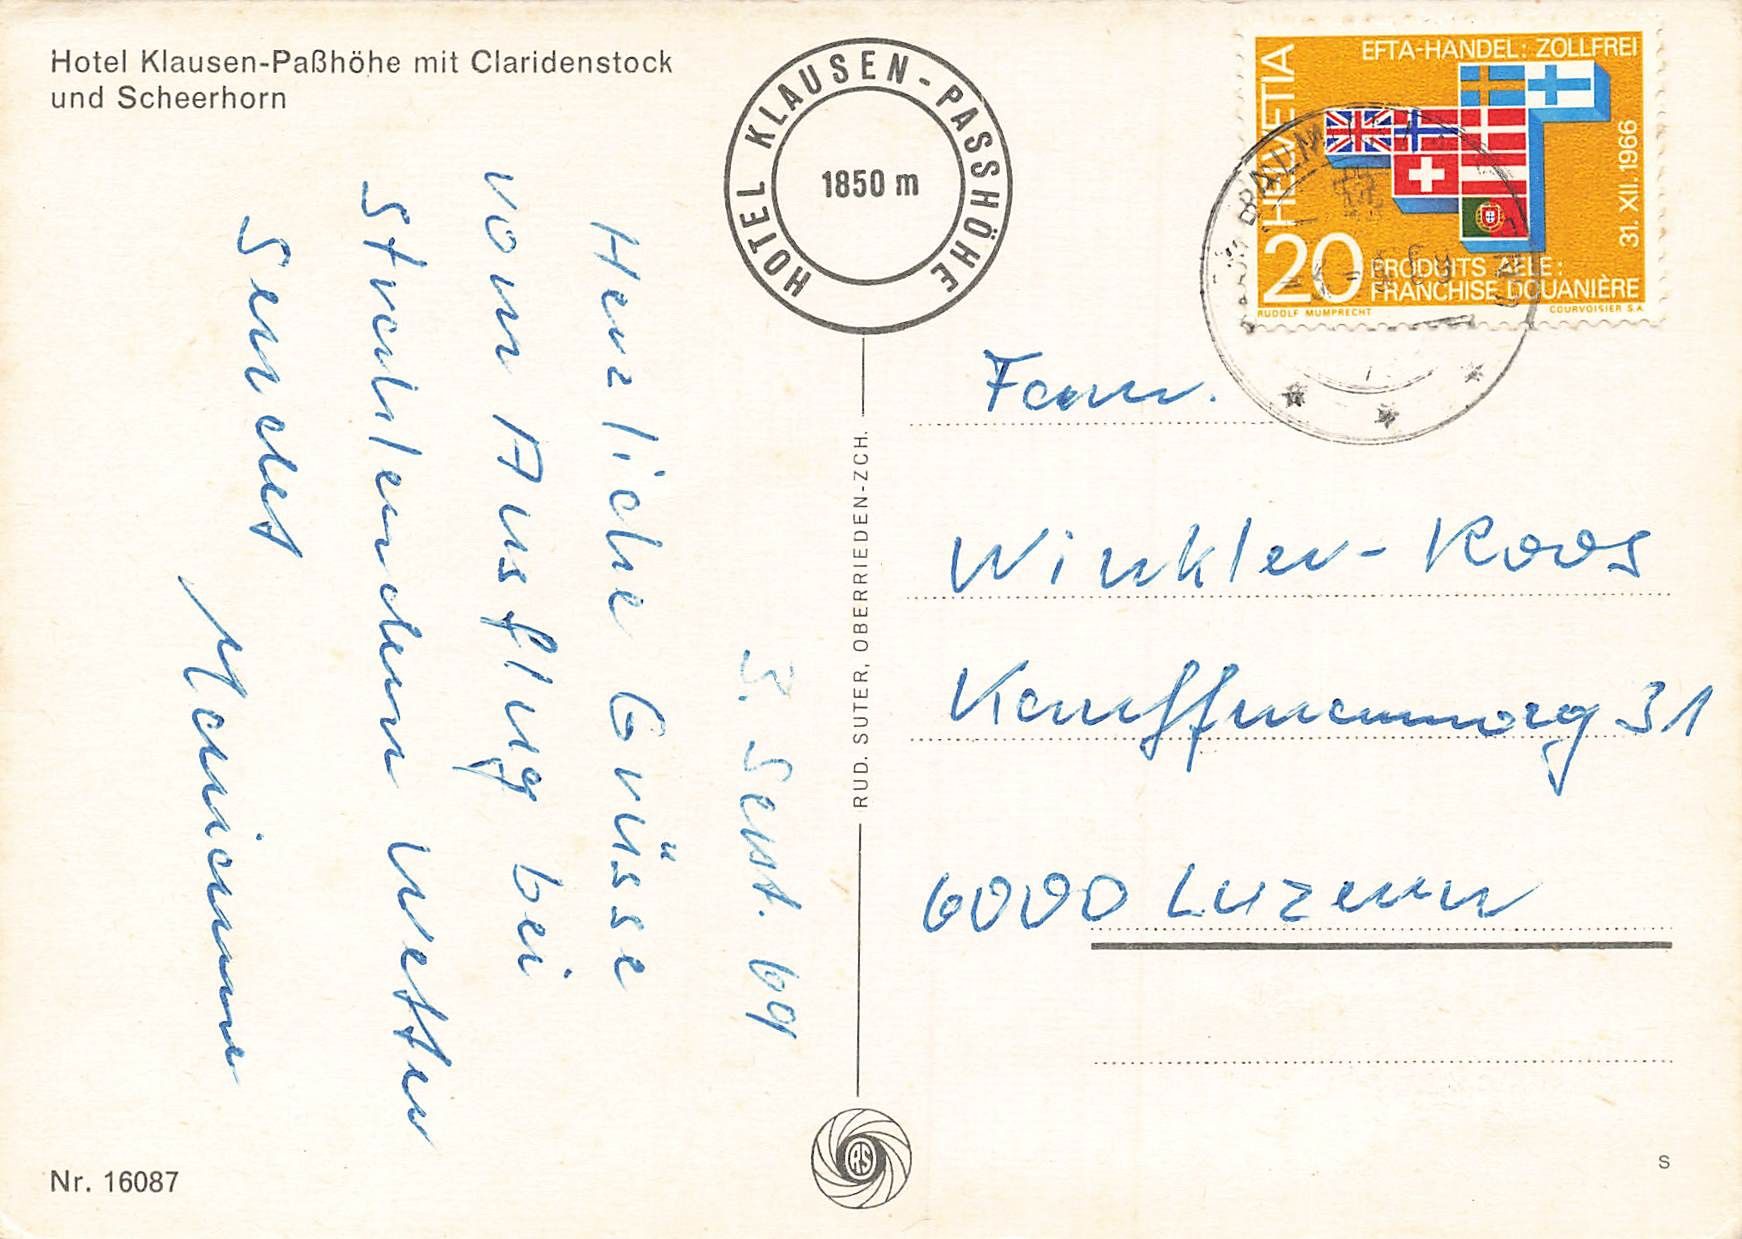 Hotel Klausen-Paßhöhe mit Claridenstock
und Scheerhorn
HOTEL KLAUSEN-PASSHÖHE
1850 m
HELVETIA
EFTA-HANDEL: ZOLLFREI
31. XII. 1966
20
PRODUITS AELE:
FRANCHISE DOUANIÈRE
RUDOLF MUMPRECHT
COURVOISIER S.A.
3. Sept. 69
Herzliche Grüsse
vom Ausflug bei
Strahlendem Wetter
Sendet
Marianne
RUD. SUTER, OBERRIEDEN-ZCH.
Fam.
Winkler-Roos
Kauffmannweg 31
6000 Luzern
RS
Nr. 16087
S